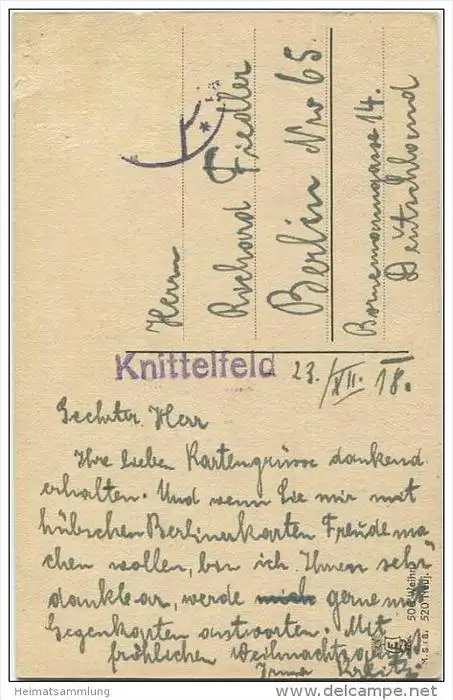 Herrn
Richard Fiedler
Berlin No 65.
Bornemanngasse 14.
Deutschland
Knittelfeld 23./XII. 18.
Geehrter Herr
Ihre lieben Kartengrüsse dankend
erhalten. Und wenn Sie mir mit
hübschen Berlinerkarten Freude ma
chen wollen, bin ich Ihnen sehr
dankbar, werde gerne mit
Gegenkarten antworten. Mit
fröhlichen Weihnachts
Irma
506 Weihn.
M.S.i.B. 520 Neuj.
Heimatsammlung
www.delcampe.net